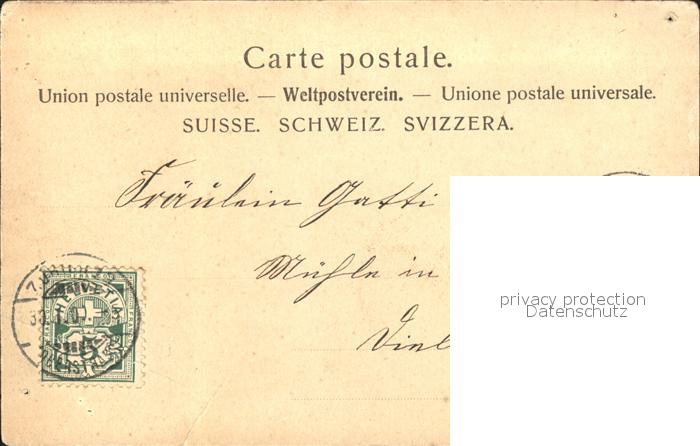 Carte postale.
Union postale universelle. — Weltpostverein. — Unione postale universale.
SUISSE. SCHWEIZ. SVIZZERA.
Fräulein Gatti
Mühle in
privacy protection
Datenschutz
HELVETIA
5